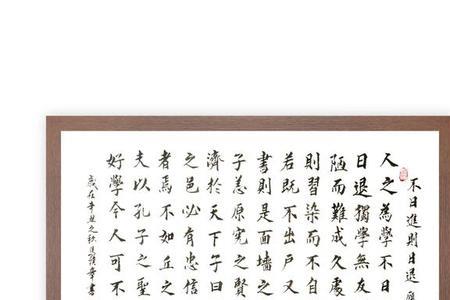 不日進則日退
人之為學不日
日退獨學無友
陋而難成久處
則習染而不自
若既不出戶又
書則是面墻之
子羔原憲之賢
濟於天下子曰
之邑必有忠信
者焉不如丘之
夫以孔子之聖
好學今人可不
歲在辛丑之秋章書